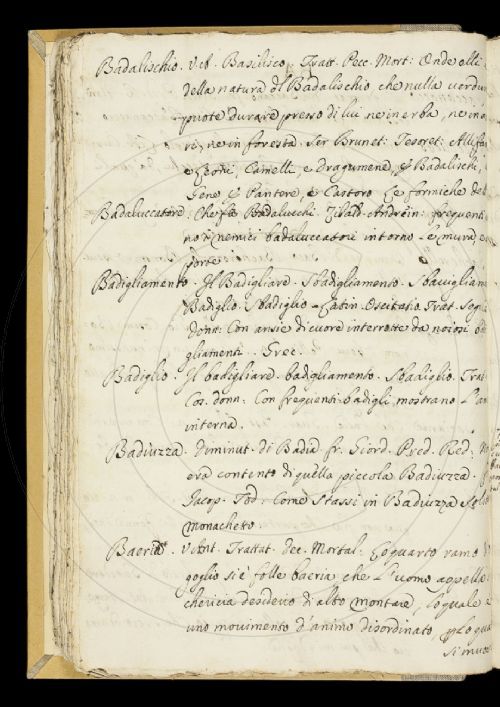 Badalischio. Vib. Basilisco. Tratt. Pecc. Mort: Onde elli
della natura del Badalischio che nulla verdur
puote durare presso di lui ne in erba, ne in a
ri, ne in foresta. Ser Brunet: Tesoret:
e Leoni, Camelli, e Dragumene, e Badalischi,
Gene e Pantere, e Castoro Le formiche de
Badaluccatore. Che fa Badalucchi. Tibald. Andrein: frequenti
nemici badaluccatori intorno e mura, e
porte
Badigliamento. Il Badigliare. Sbadigliamento. Sbavigliam
Badiglio. Sbadiglio. Latin. Oscitatio. Trat. Segr.
donn: Con ansie di cuore interrotte da noiosi
gliamenti. Grec.
Badiglio. Il badigliare. badigliamento. Sbadiglio. Trat.
Cos. donn: Con frequenti badigli mostrano L'an
interna.
Badiuzza. Diminut. di Badia fr. Giord. Pred. Red:
era contento di quella piccola Badiuzza.
Jacop. Tod: Come stassi in Badiuzza
monachetto.
Baeria. Trattat. Pec. Mortal: Lo quarto ramo
goglio si è folle baeria che L'uomo appella
chericia desiderio di alto montare, lo quale e
uno movimento d'animo disordinato lo qua
si muo